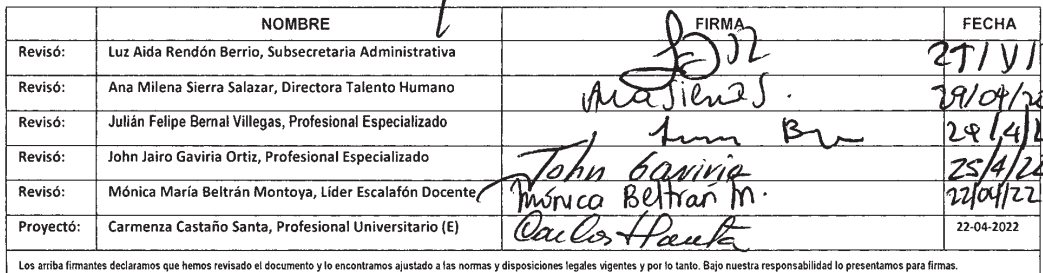 NOMBRE FIRMA FECHA
Revisó: Luz Aida Rendón Berrio, Subsecretaria Administrativa
Revisó: Ana Milena Sierra Salazar, Directora Talento Humano 29/04/22
Revisó: Julián Felipe Bernal Villegas, Profesional Especializado
Revisó: John Jairo Gaviria Ortiz, Profesional Especializado John Gaviria 25/4/22
Revisó: Mónica María Beltrán Montoya, Líder Escalafón Docente Mónica Beltrán M. 22/04/22
Proyectó: Carmenza Castaño Santa, Profesional Universitario (E) 22-04-2022
Los arriba firmantes declaramos que hemos revisado el documento y lo encontramos ajustado a las normas y disposiciones legales vigentes y por lo tanto. Bajo nuestra responsabilidad lo presentamos para firmas.